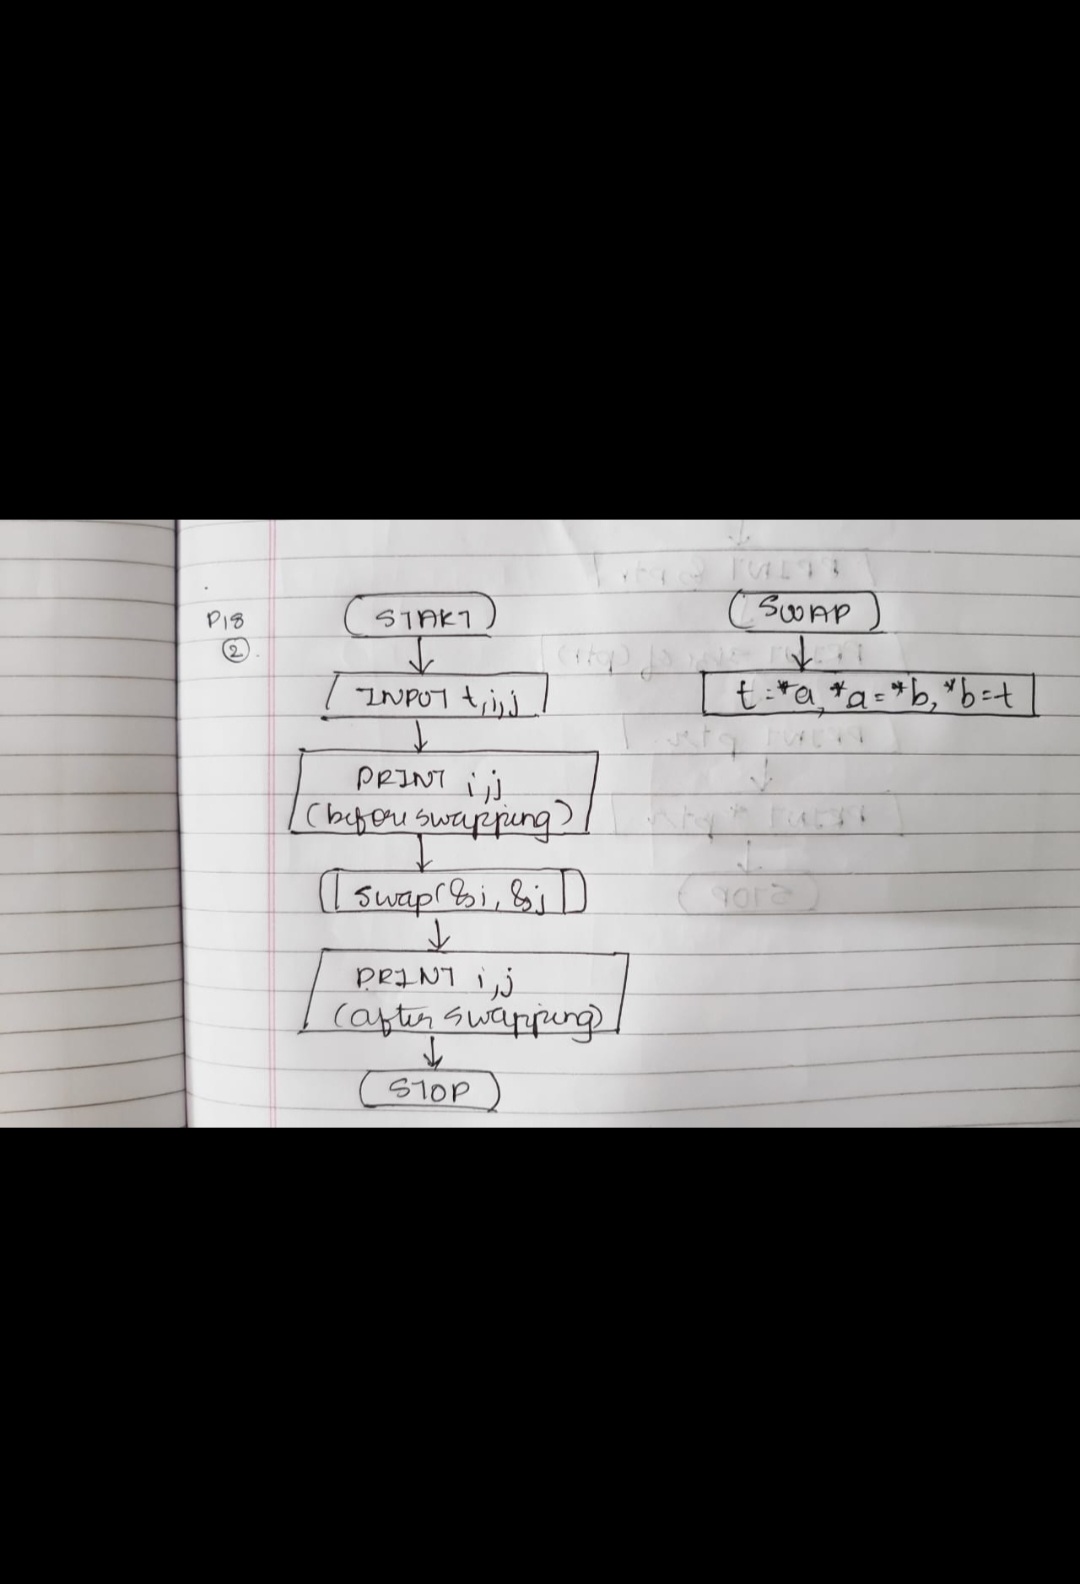 P18
②.
START
INPUT t,i,j
PRINT i,j
(before swapping)
swap(&i, &j
PRINT i,j
(after swapping)
STOP
SWAP
t=*a, *a=*b, *b=t